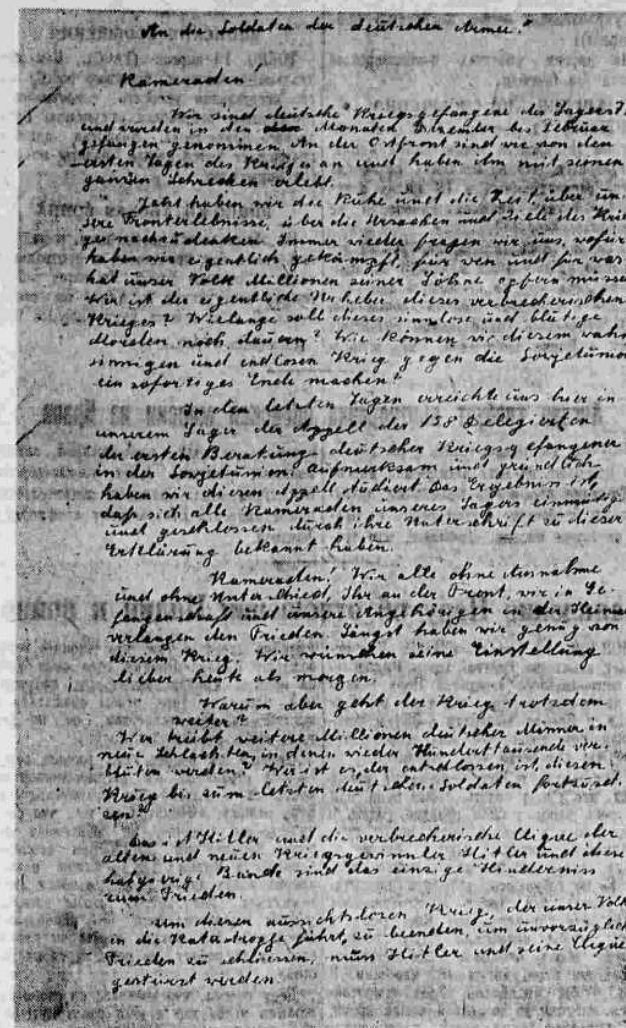 An die Soldaten der deutschen Armee!
Kameraden!
Wir sind deutsche Kriegsgefangene des Lagers
und wurden in den Monaten Dezember bis Februar
gefangen genommen. An der Ostfront sind wir von den
ersten Tagen des Krieges an und haben ihn mit seinen
ganzen Schrecken erlebt.
Jetzt haben wir die Ruhe und die Zeit, über un-
sere Fronterlebnisse, über die Ursachen und Ziele des Krie-
ges nachzudenken. Immer wieder fragen wir uns, wofür
haben wir eigentlich gekämpft, für wen und für was
hat unser Volk Millionen seiner Söhne opfern müssen
Wer ist der eigentliche Urheber dieses verbrecherischen
Krieges? Wielange soll dieses sinnlose und blutige
Morden noch dauern? Wie können wir diesem wahn
sinnigen und endlosen Krieg gegen die Sovjetunion
ein sofortiges Ende machen?
In den letzten Tagen erreichte uns hier in
unserem Lager der Appell der 158 Delegierten
der ersten Beratung deutscher Kriegsgefangener
in der Sovjetunion. Aufmerksam und gründlich
haben wir diesen Appell studiert. Das Ergebniss ist,
daß sich alle Kameraden unseres Lagers einmütig
und geschlossen durch ihre Unterschrift zu dieser
Erklärung bekannt haben.
Kameraden! Wir alle ohne Ausnahme
und ohne Unterschied, Ihr an der Front, wir in Ge-
fangenschaft und unsere Angehörigen in der Heimat
verlangen den Frieden. Längst haben wir genug von
diesem Krieg. Wir wünschen seine Einstellung
lieber heute als morgen.
Warum aber geht der Krieg trotzdem
weiter?
Wer treibt weitere Millionen deutscher Männer in
neue Schlachten, in denen wieder Hunderttausende ver-
bluten werden? Wer ist es, der entschlossen ist, diesen
Krieg bis zum letzten deutschen Soldaten fortzuset-
zen?
Das ist Hitler und die verbrecherische Clique der
alten und neuen Kriegsgewinnler. Hitler und diese
habgierige Bande sind das einzige Hinderniss
zum Frieden.
Um diesen aussichtslosen Krieg, der unser Volk
in die Katastrophe führt, zu beenden, um unverzüglich
Frieden zu schliessen, muss Hitler und seine Clique
gestürzt werden.